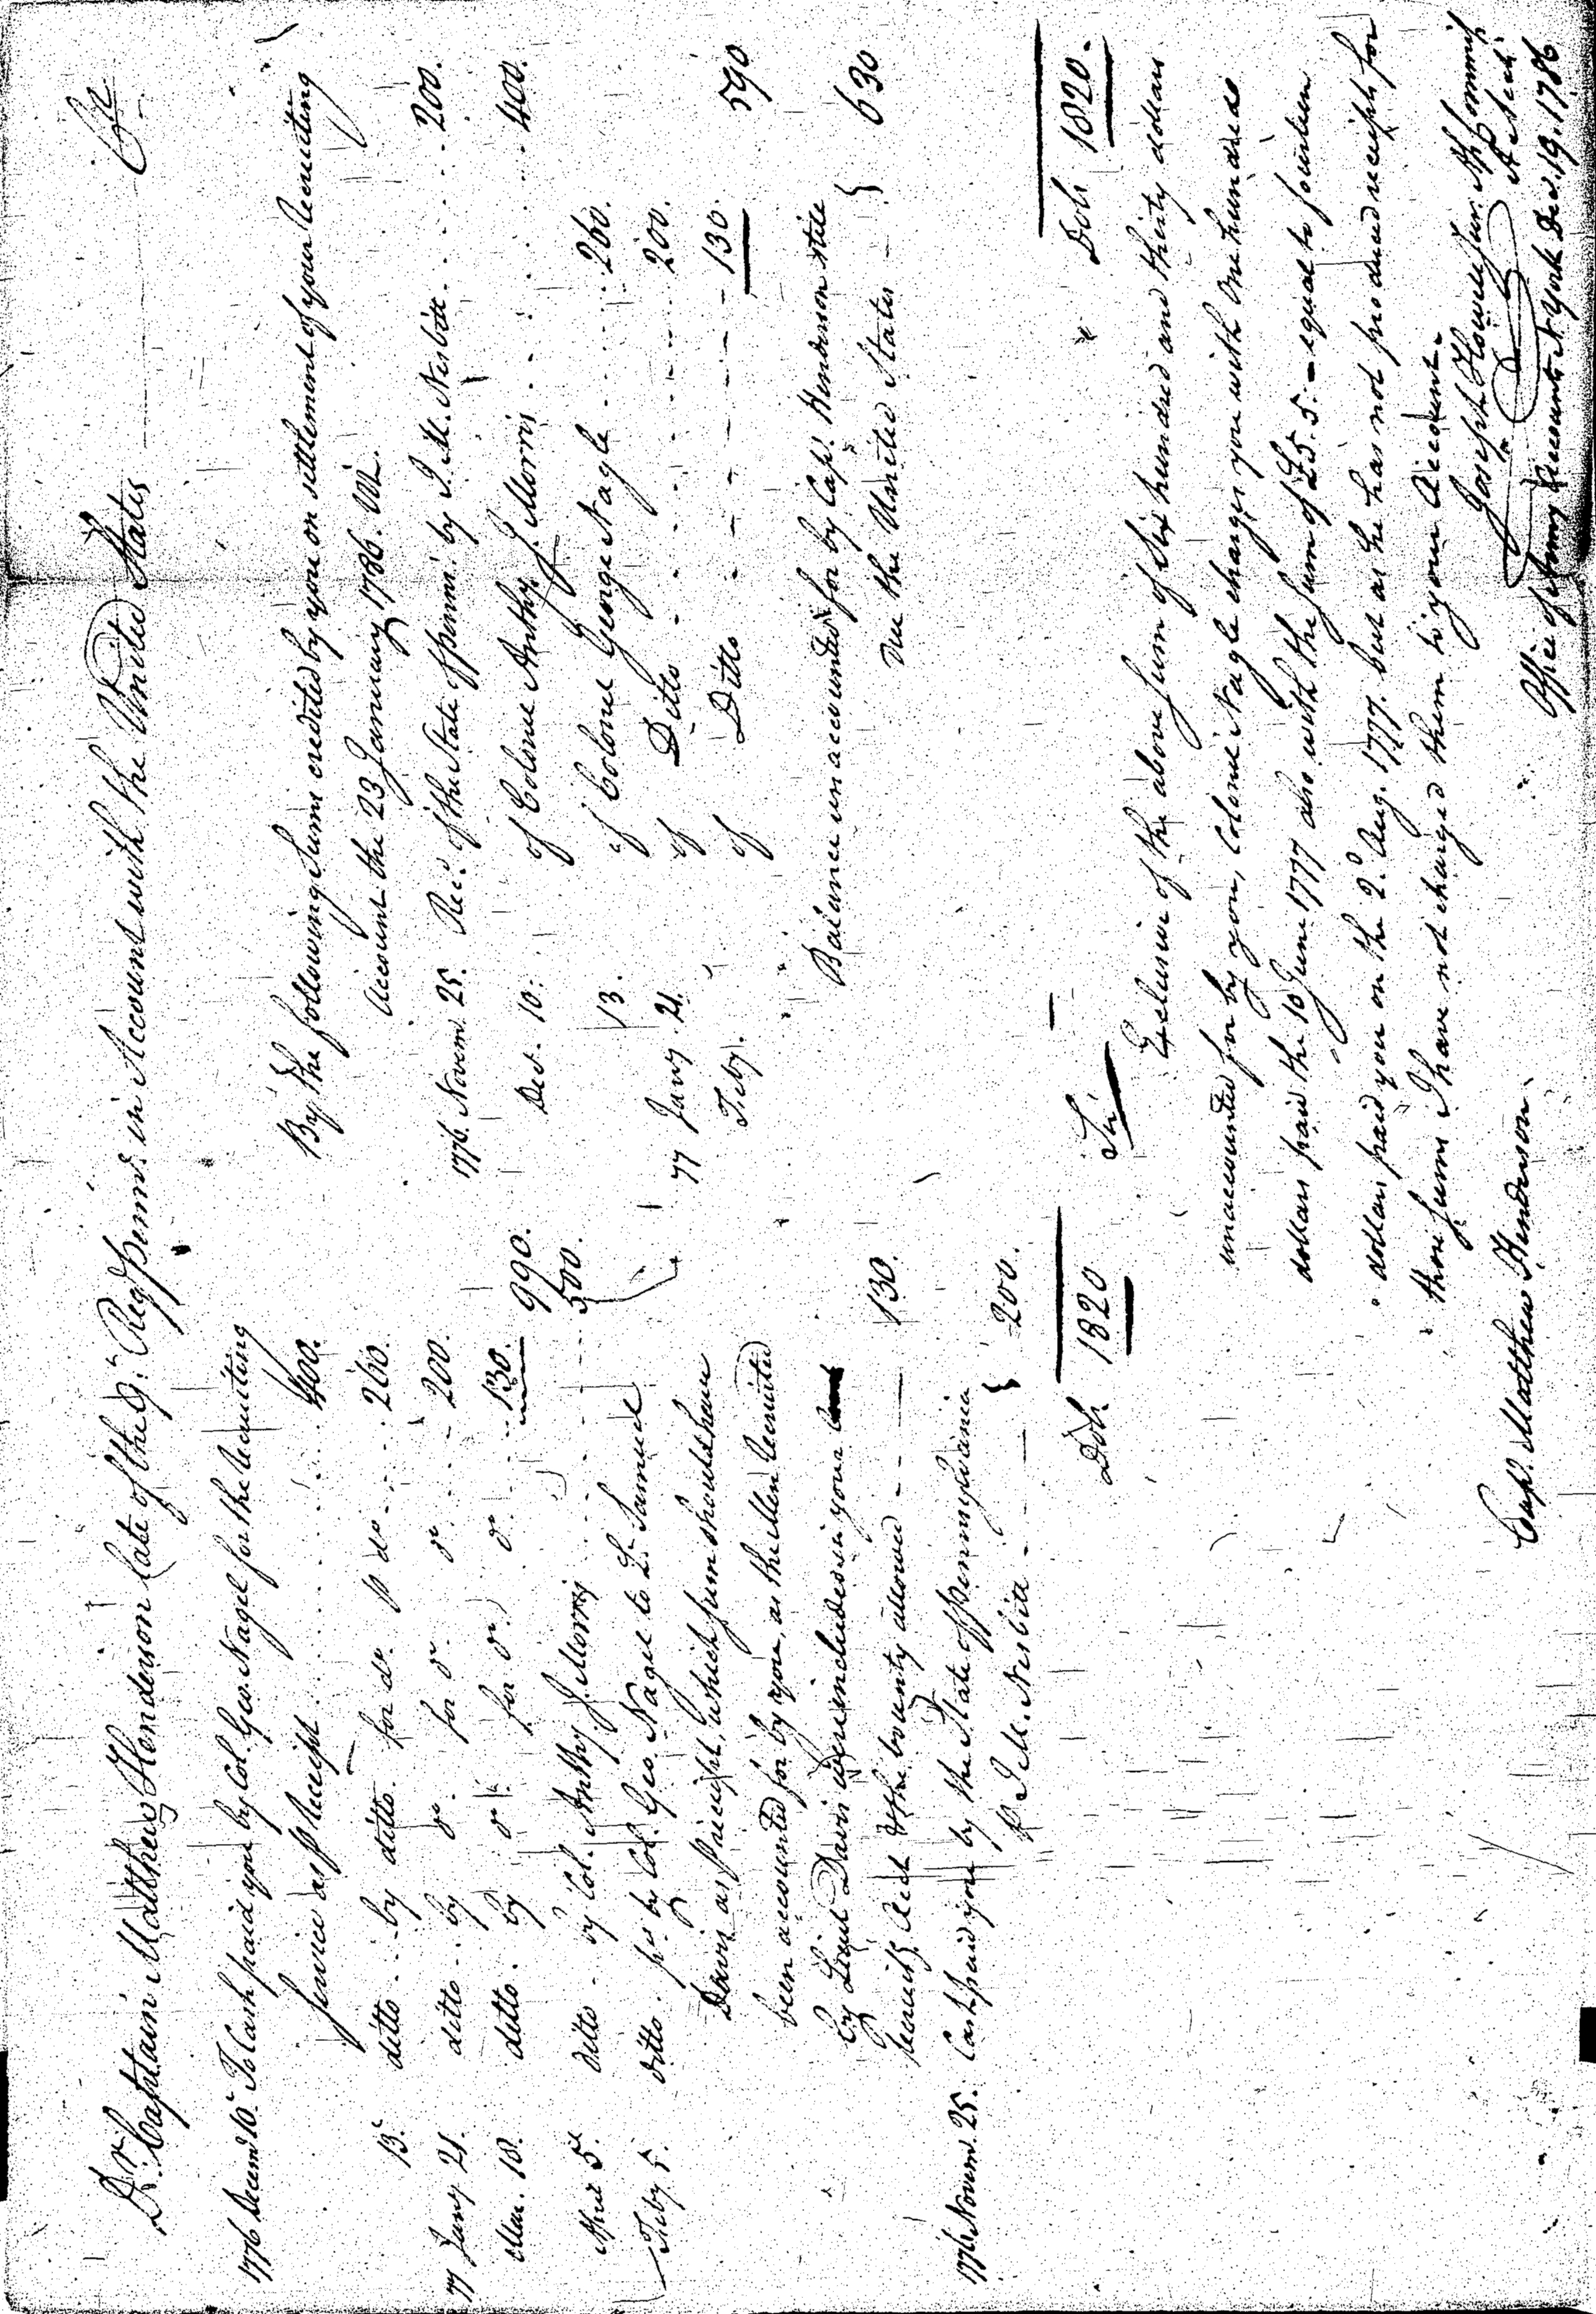 Dr. Captain Matthew Henderson late of the 9th Reg Pennd. in Account with the United States Cr
1776 Decemr 10th To Cash paid you by Col. Geo. Nagel for the recruiting
service as p receipt 400.
13th ditto by ditto for do. p do 260.
77 Jany 21. ditto by do. for do. do 200.
Mar. 18. ditto by do. for do. do 130.
990.
April 5th ditto by Col. Anthy. J. Morris 500.
Feby 5. ditto by Col. Geo. Nagel to Lt. Samuel
Davis as p receipt, which sum should have
been accounted for by you, as the Men recruited
by Lieut Davis were included in your
recruitg. Acct & the bounty allowed 130.
1776 Novemr. 25. Cash paid you by the State of Pennsylvania
p J. M. Nesbitt 200.
Dols 1820
By the following sums credited by you on settlement of your recruiting
Account the 23 January 1786. Viz.
1776. Novemr 25. Recd. of the State of Pennsa. by J. M. Nesbitt 200.
Decr. 10. of Colonel Anthy. J. Morris 400.
13. of Colonel George Nagle 260.
77 Jany. 21. of Ditto 200.
Feby. of Ditto 130.
590
Balance unaccounted for by Capt. Henderson still
due the United States 630
Dols 1820.
Sir
Exclusive of the above sum of Six hundred and thirty dollars
unaccounted for by you, Colonel Nagle charges you with One hundred
dollars paid the 10 June 1777 also with the sum of £5.5. equal to fourteen
dollars paid you on the 2d Aug. 1777. but as he has not produced receipts for
those sums I have not charged them to your Account.
Joseph Howell Junr.
Office of Army Accounts N York Decr. 19. 1786
Capt. Matthew Henderson.